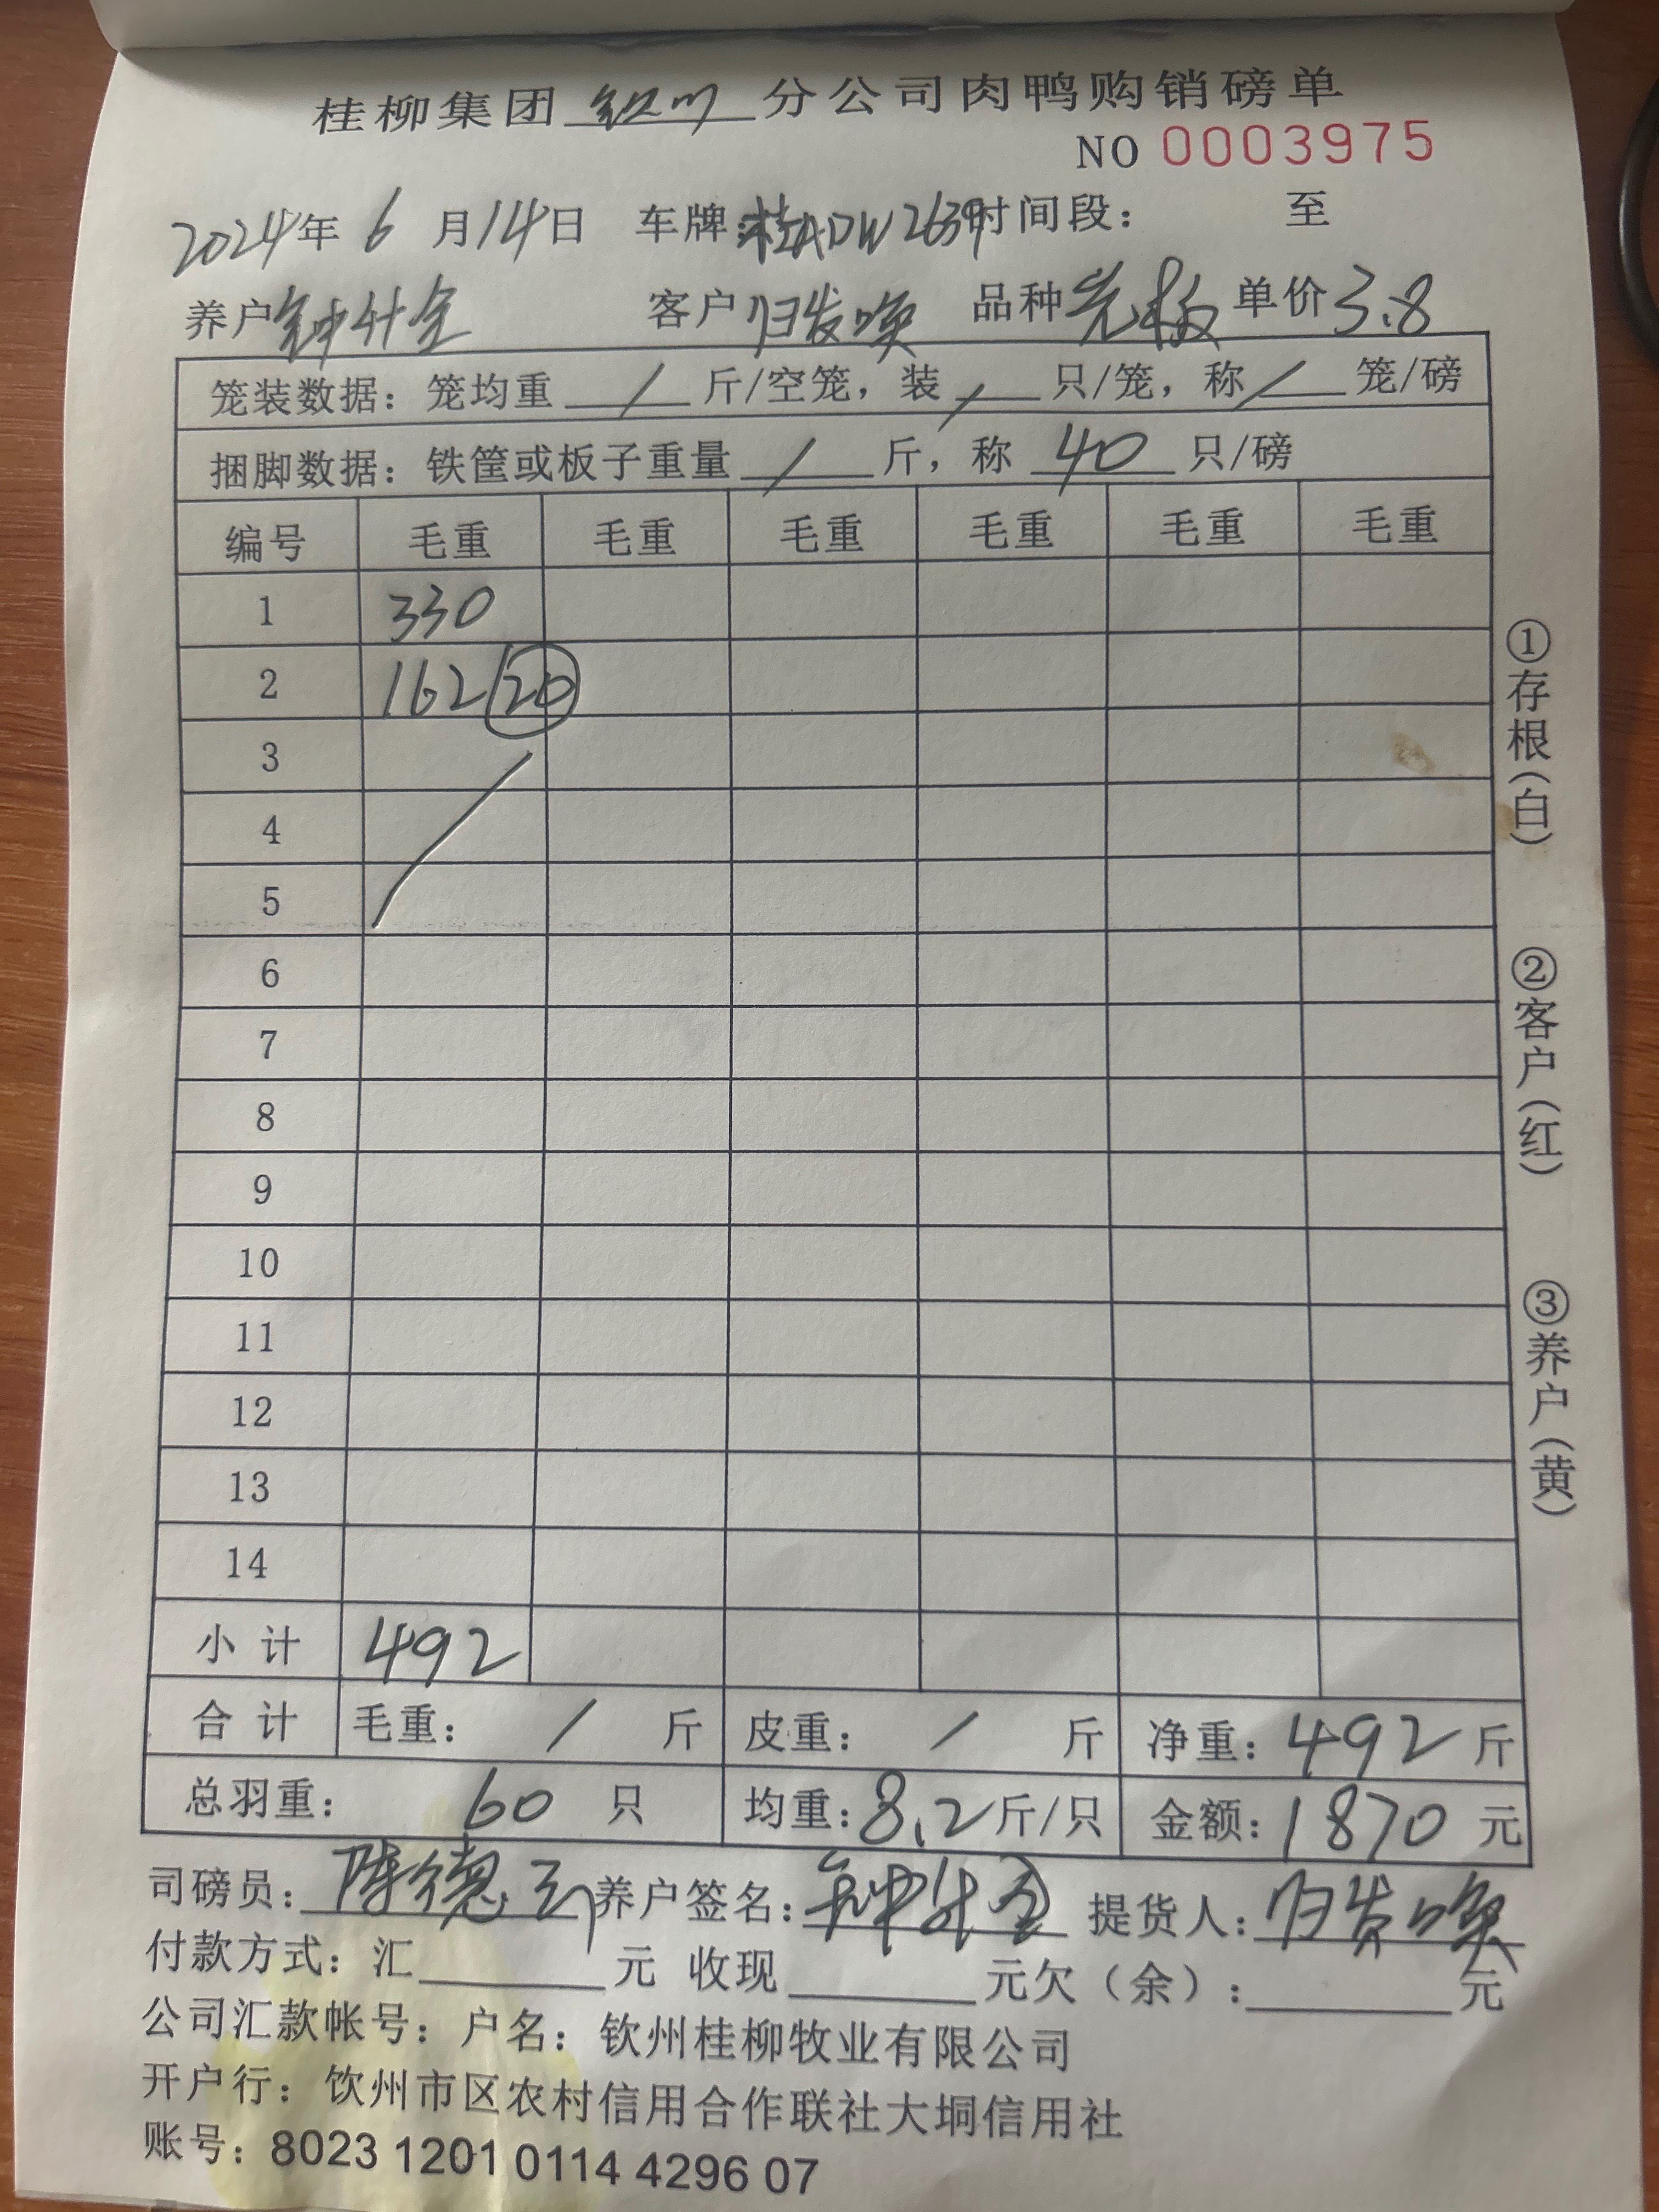 桂柳集团钦州分公司肉鸭购销磅单
NO 0003975
2024年 6 月14日 车牌:桂ADW2639时间段: 至
养户钟什全 客户归发唤 品种光板 单价3.8
笼装数据:笼均重 / 斤/空笼,装 / 只/笼,称 / 笼/磅
捆脚数据:铁筐或板子重量 / 斤,称 40 只/磅
编号 毛重 毛重 毛重 毛重 毛重 毛重
1 330
2 162(20)
3
4
5
6
7
8
9
10
11
12
13
14
小计 492
合计 毛重: / 斤 皮重: / 斤 净重:492斤
总羽重: 60 只 均重:8.2斤/只 金额:1870 元
①存根(白)
②客户(红)
③养户(黄)
司磅员:陈德 养户签名:钟什全 提货人:归发唤
付款方式:汇 元 收现 元欠(余): 元
公司汇款帐号:户名:钦州桂柳牧业有限公司
开户行:饮州市区农村信用合作联社大垌信用社
账号:8023 1201 0114 4296 07